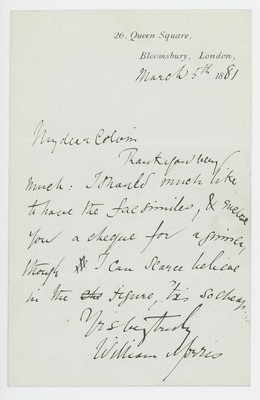 26, Queen Square,
Bloomsbury, London,
March 5th 1881
My dear Colvin
Thank you very
much: I should much like
to have the facsimiles, & enclose
you a cheque for a guinea,
though I can scarce believe
in the figure, 'tis so cheap.
Yrs very truly
William Morris